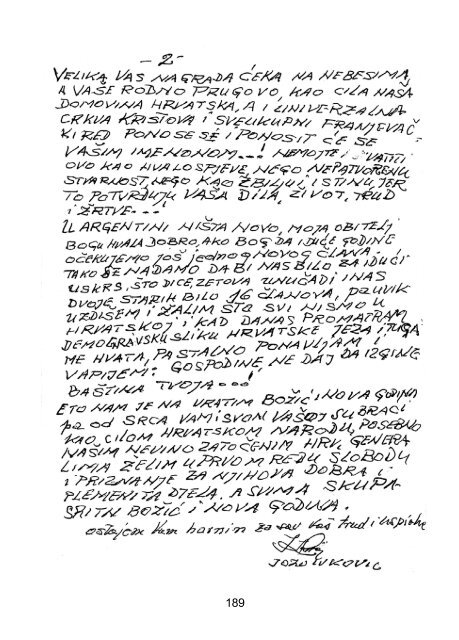 - 2 -
VELIKA VAS NAGRADA ČEKA NA NEBESIMA,
A VAŠE RODNO PRUGOVO, KAO CILA NAŠA
DOMOVINA HRVATSKA, A I UNIVERZALNA
CRKVA KRISTOVA I SVEUKUPNI FRANJEVAČ
KI RED PONOSE SE I PONOSIT ĆE SE
VAŠIM IMENONOM...! NEMOJTE VATITI
OVO KAO HVALOSPJEVE, NEGO NEPATVORENU
STVARNOST, NEGO KAO ZBILJU I ISTINU, JER
TO POTVRDJUJU VAŠA DILA, ŽIVOT, TRUD
I ŽRTVE...!
U ARGENTINI NIŠTA NOVO, MOJA OBITELJ
BOGU HVALA DOBRO, AKO BOG DA IDUĆE GODINE
OČEKUJEMO JOŠ JEDNOG NOVOG ČLANA.
TAKO SE NADAMO DA BI NAS BILO ZA IDUĆI
USKRS, ŠTO DICE, ZETOVA UNUČADI I NAS
DVOJE STARIH BILO 16 ČLANOVA, pa UVIK
UZDIŠEM I ŽALIM ŠTO SVI NISMO U
HRVATSKOJ I KAD DANAS PROMATRAM
DEMOGRAVSKU SLIKU HRVATSKE JEZA I TUGA
ME HVATA, PA STALNO PONAVLJAM I
VAPIJEM: GOSPODINE, NE DAJ DA IZGINE
BAŠTINA TVOJA...!
ETO NAM JE NA VRATIM BOŽIĆ I NOVA GODINA
pa OD SRCA VAM I SVON VAŠOJ SUBRAĆI
KAO CILOM HRVATSKOM NARODU, POSEBNO
NAŠIM NEVINO ZATOČENIM HRV. GENERA
LIMA ŽELIM U PRVOM REDU SLOBODU
I PRIZNANJE ZA NJIHOVA DOBRA I
PLEMENITA DJELA. A SVIMA SKUPA
SRITN BOŽIĆ I NOVA GODINA.
ostajem Vam harnin za sav Vaš trud i
JOZO VUKOVIC
189